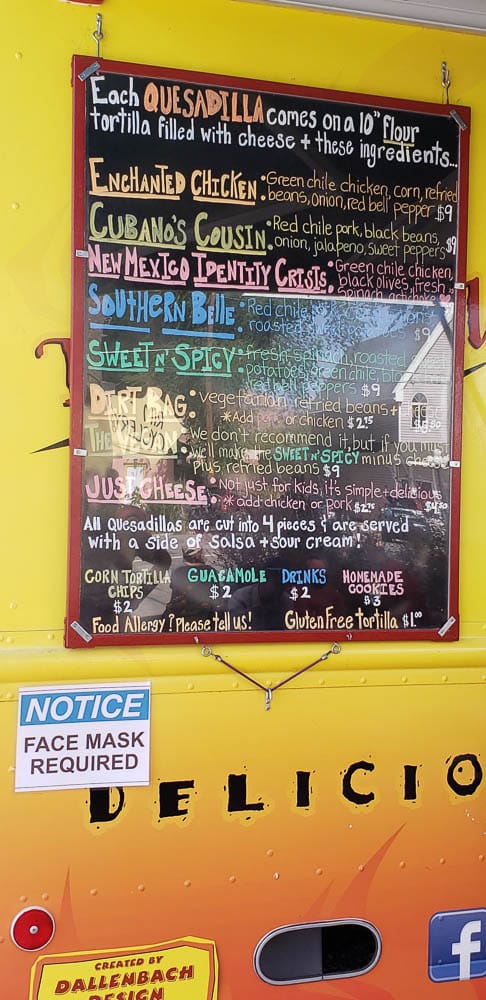 Each QUESADILLA comes on a 10" flour
tortilla filled with cheese + these ingredients...
ENCHANTED CHICKEN: Green chile chicken, corn, refried
beans, onion, red bell pepper $9
CUBANO'S COUSIN: Red chile pork, black beans,
onion, jalapeno, sweet peppers $9
NEW MEXICO IDENTITY CRISIS: Green chile chicken,
black olives, fresh
spinach, artichoke
SOUTHERN BELLE: Red chile
roasted sweet potatoes $9
SWEET N' SPICY: fresh spinach, roasted
potatoes, green chile,
red bell peppers $9
DIRT BAG: vegetarian refried beans +
*Add pork or chicken $2.75
THE VEGAN: We don't recommend it, but if you must
we'll make the SWEET N' SPICY minus cheese
plus refried beans $9
JUST CHEESE: not just for kids, it's simple + delicious
*add chicken or pork $2.75
All Quesadillas are cut into 4 pieces & are served
with a side of salsa + sour cream!
CORN TORTILLA
CHIPS
$2
GUACAMOLE
$2
DRINKS
$2
HOMEMADE
COOKIES
$3
Food Allergy? Please tell us!
Gluten Free tortilla $1.00
NOTICE
FACE MASK
REQUIRED
DELICIO
CREATED BY
DALLENBACH
DESIGN
f